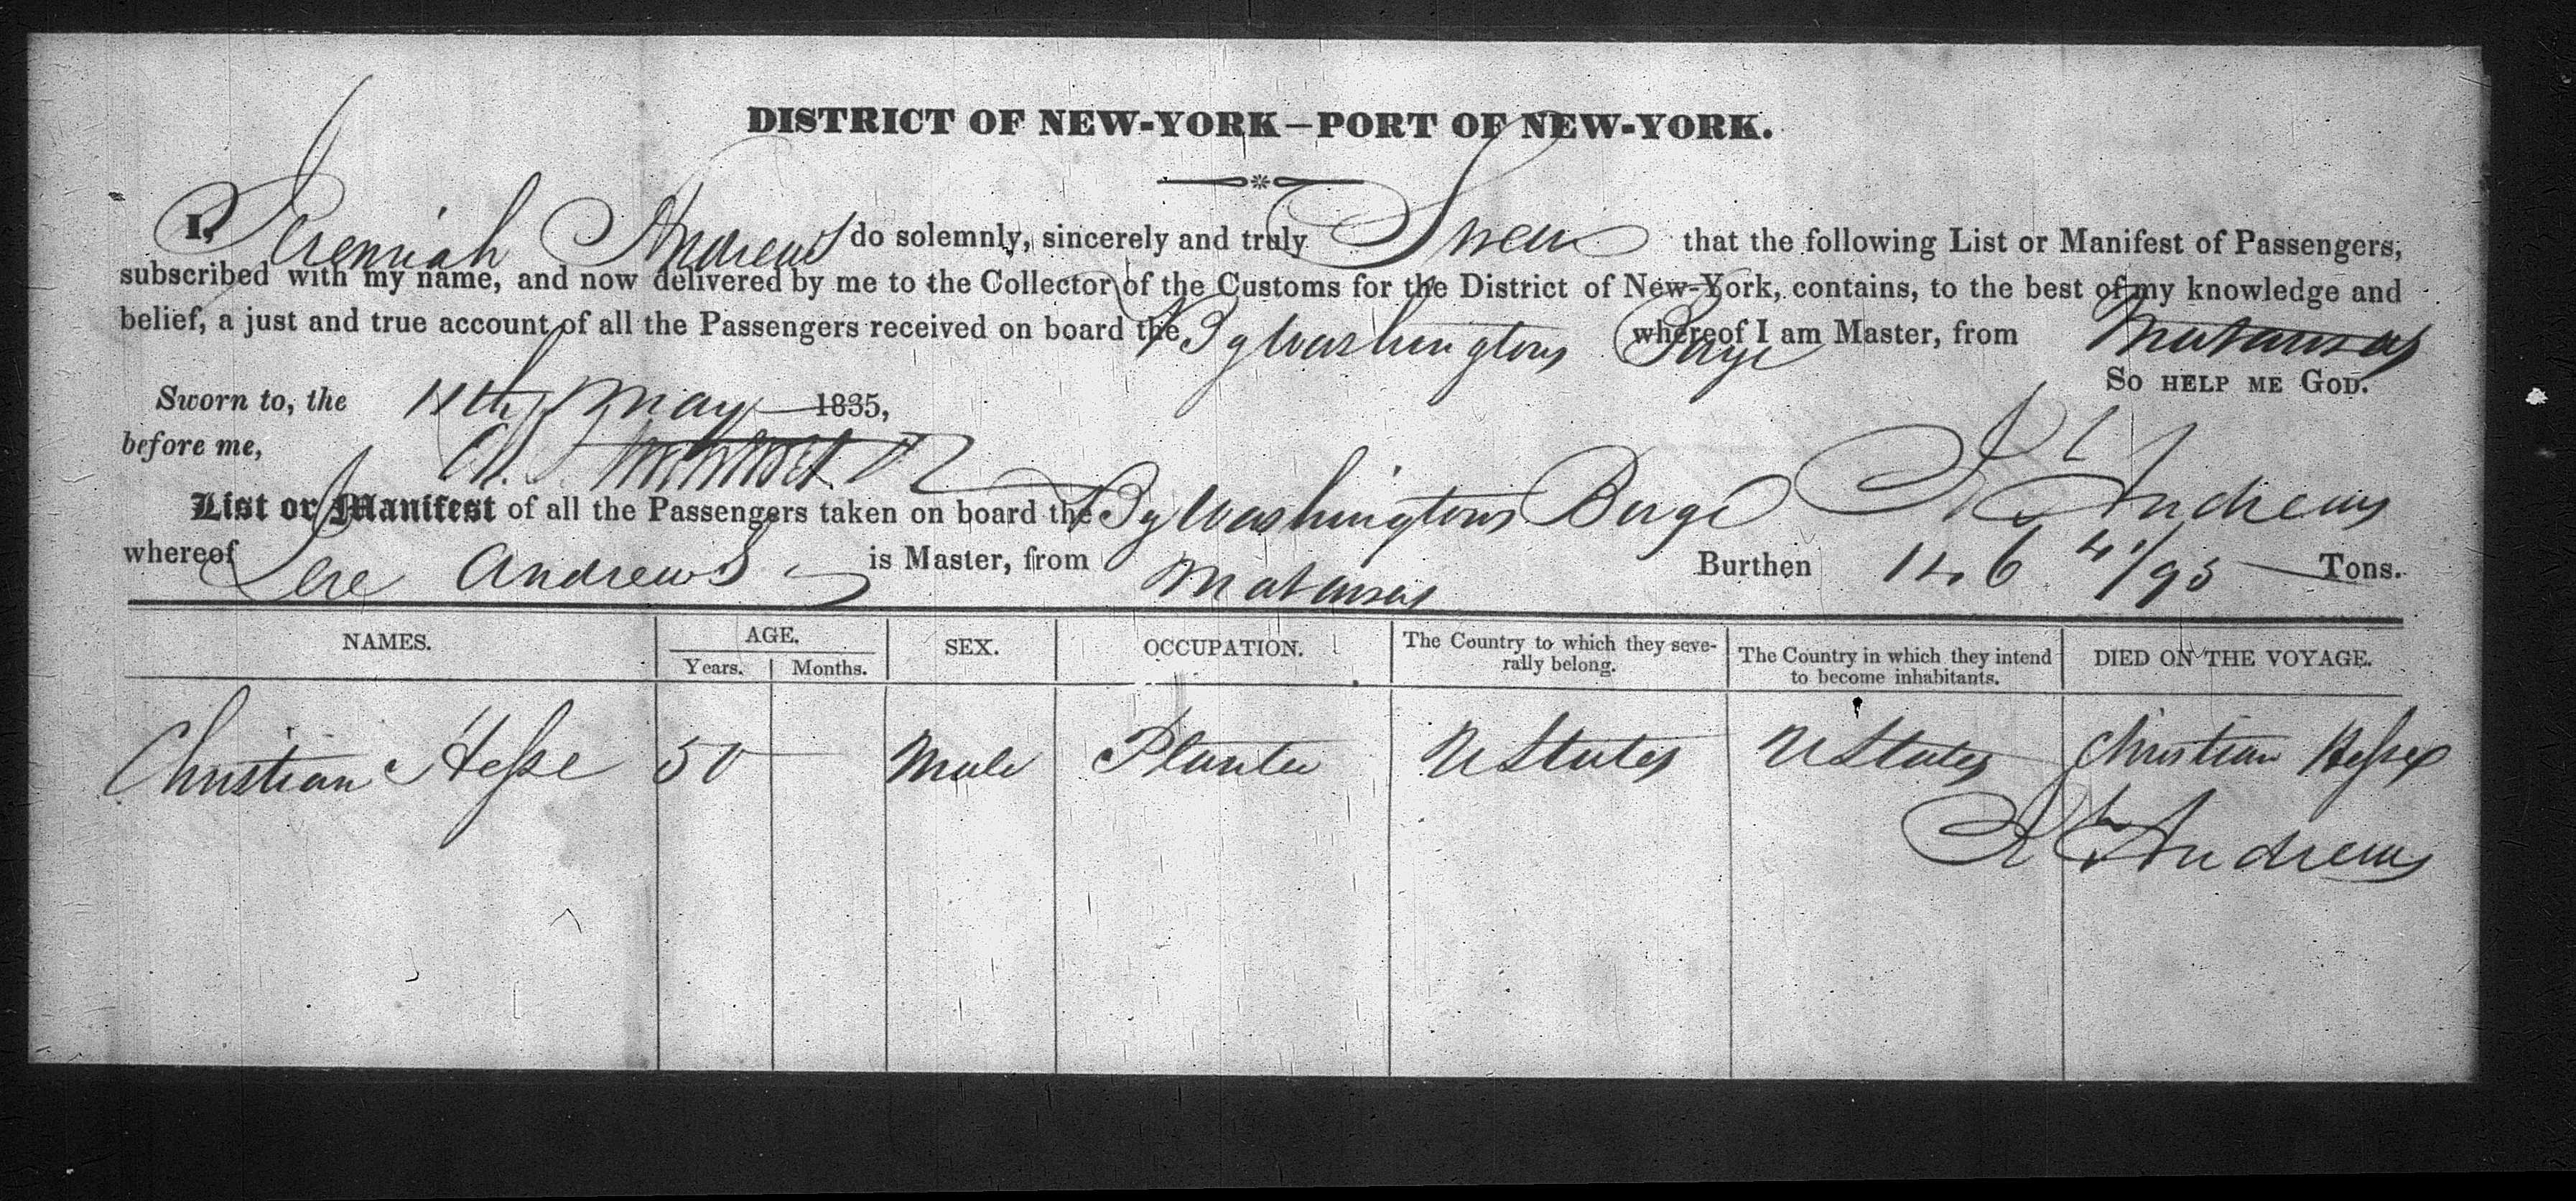 DISTRICT OF NEW-YORK—PORT OF NEW-YORK.
I, Jeremiah Andrews do solemnly, sincerely and truly Swear that the following List or Manifest of Passengers,
subscribed with my name, and now delivered by me to the Collector of the Customs for the District of New-York, contains, to the best of my knowledge and
belief, a just and true account of all the Passengers received on board the Bg Washingtons Barge whereof I am Master, from Matansas
SO HELP ME GOD.
Sworn to, the 11th May 1835,
before me,
Andrews
List or Manifest of all the Passengers taken on board the Bg Washingtons Barge
whereof Jere Andrews is Master, from Matansas Burthen 146 41/95 Tons.
NAMES. AGE. SEX. OCCUPATION. The Country to which they seve-rally belong. The Country in which they intend to become inhabitants. DIED ON THE VOYAGE.
Years. Months.
Christian Hesse 50 Male Planter U States U States Christian Hesse
Andrews